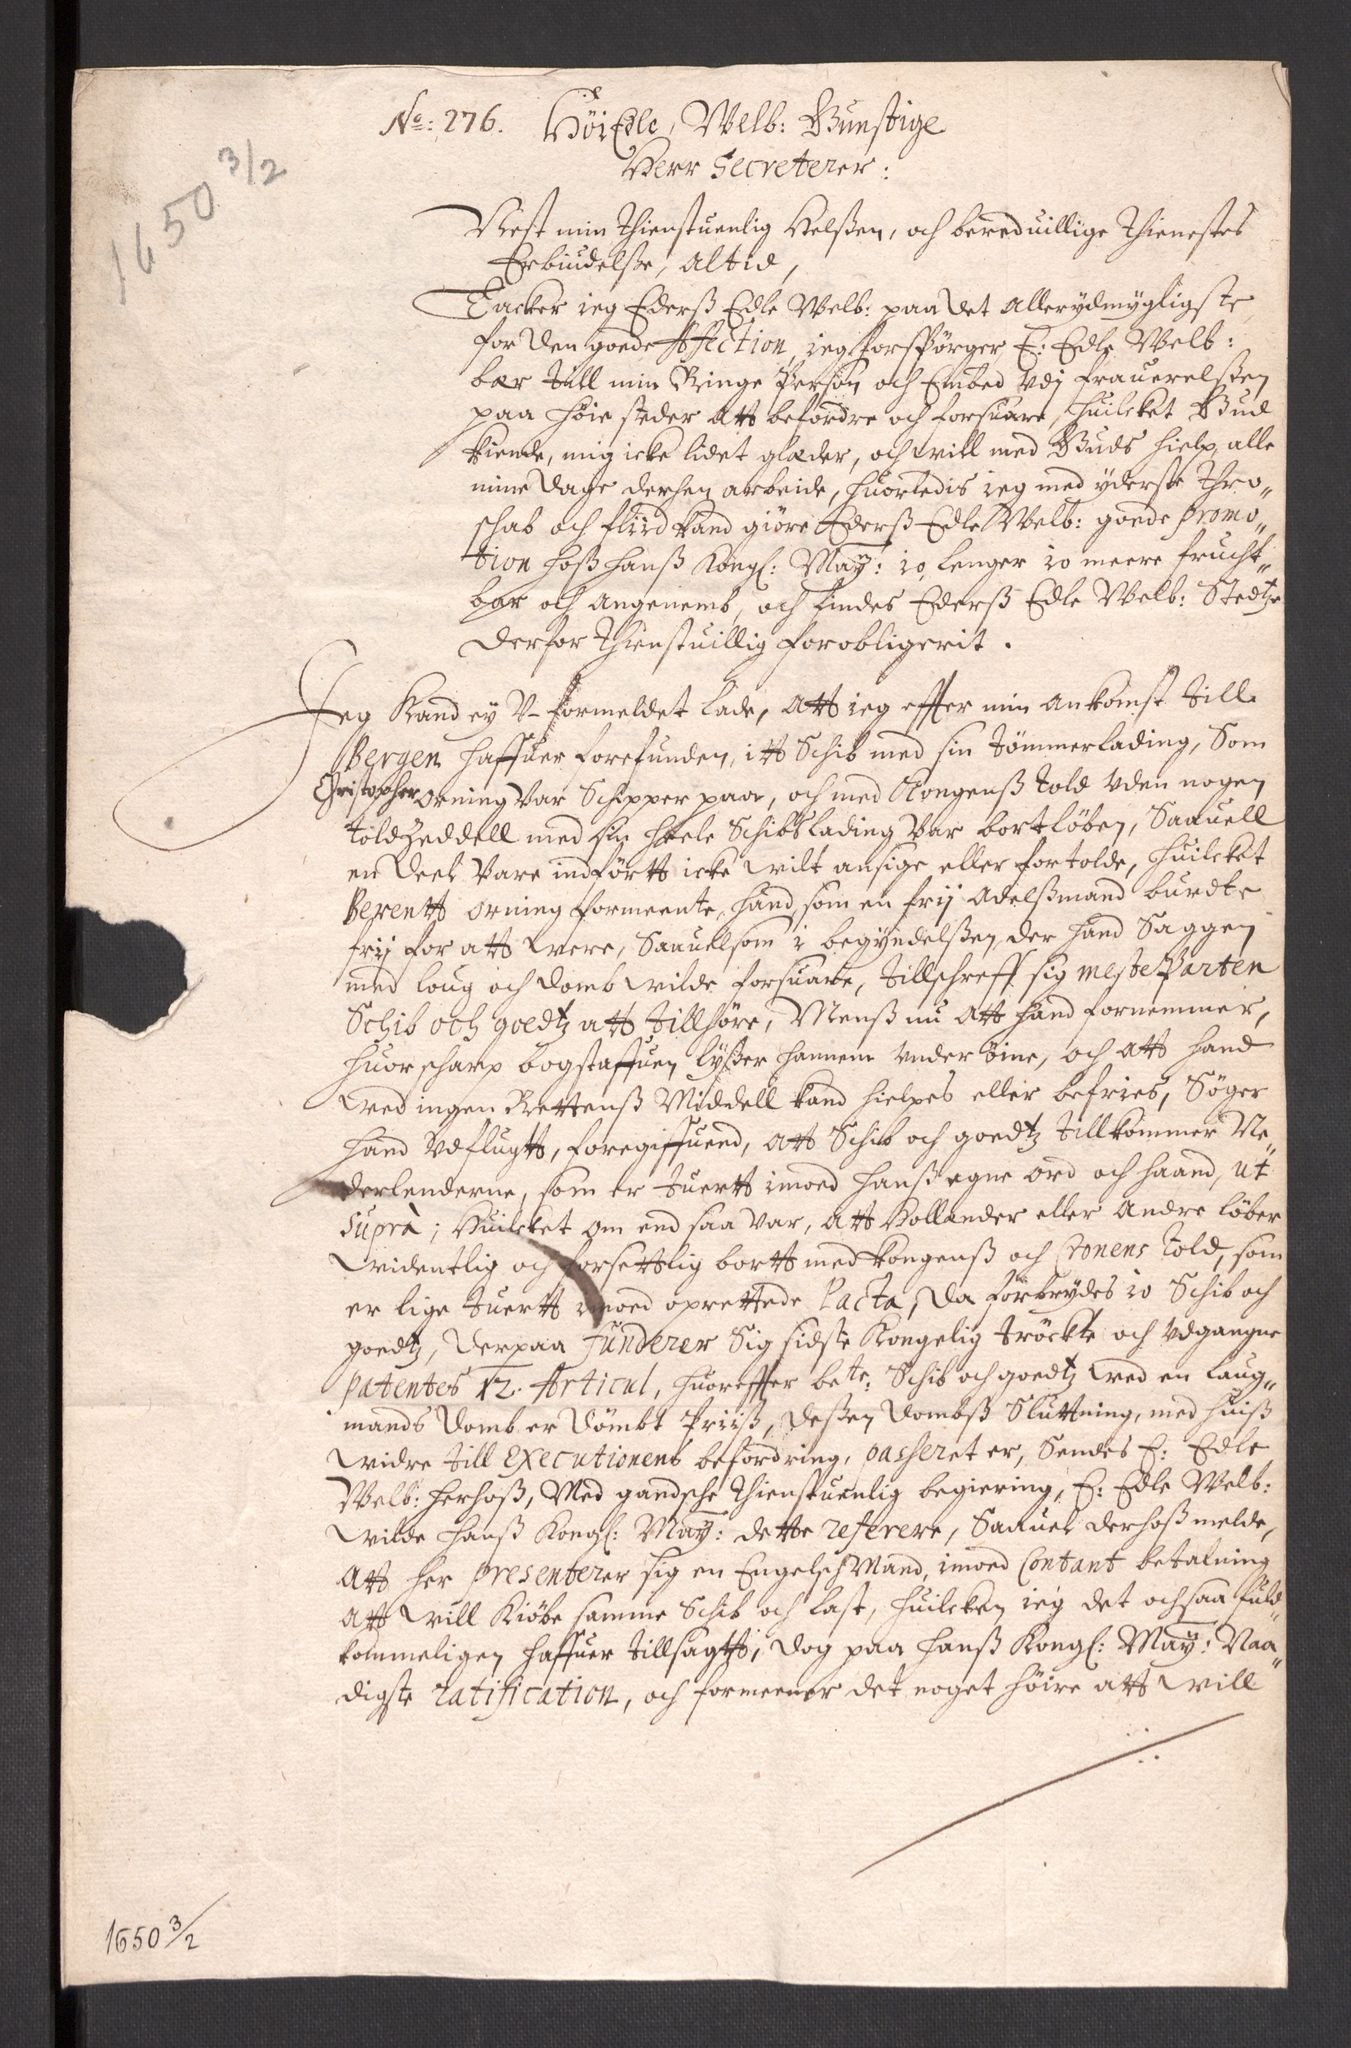 No: 276. HöiEdle, Welb: Gunstige
Herr Secreterer:
1650 3/2
Nest min thienstuenlig Helßen, och bereduillige thienestes
Erbiudelße, altid,
Tacker ieg Ederß Edle Welb: paa det allerydmygligste
for den goede Affection, ieg forspörger E: Edle Welb:
bær till min Ringe Person och Embed vdj frauerelßen
paa höie steder att befordre och forsuare, huilcket Gud
kiende, mig icke lidet glæder, och will med Guds hielp alle
mine dage derhen arbeide, huorledis ieg med yderste thro„
schab och fliid kand giöre Ederß Edle Welb: goede promo„
tion hoß hanß Kongl: May: io lenger io meere frucht„
bar och angenemb, och findes Ederß Edle Welb: Stedtze
derfor thienstuillig forobligerit.
Jeg Kand ey V-formeldet lade, att ieg effter min ankomst till
Bergen haffuer forefunden, itt Schib med sin tömmerlading, Som
Christopher Orning var Schipper paa, och med Kongenß told vden nogen
toldZeddell med sin heele Schibslading var bortlöben, Saauell
en deel vare indförtt icke wilt ansige eller fortolde, huilcket
Berentt Orning formeente, hand som en frij Adelßmand burdte
frij for att were, Saauelsom i begyndelßen, der hand Saggen
med loug och domb wilde forsuare, tillschreff sig meste Parten
Schib och goedtz att tillhöre, Menß nu att hand fornemmer,
huor scharp bogstaffuen lyßer hannem vnder öine, och att hand
wed ingen Rettenß Middell kand hielpes eller befries, Söger
hand vdflugtt, foregiffuend, att Schib och goedtz tillkommer Ne„
derlenderne, som er tuertt imoed hanß egne ord och haand, ut
suprà; Huilcket om end saa var, att Hollænder eller andre löber
widentlig och forsettlig bortt med kongenß och Cronens told, som
er lige tuertt imoed oprettede Pacta, da forbrydes io Schib och
goedtz, derpaa Funderer Sig sidste Kongelig tröckte och vdgangne
patentes 12. Articul, huoreffter bete: Schib och goedtz wed en laug„
mands domb er dömbt Priiß, deßen dombß Sluttning, med huiß
widre till Executionens befordring, passeret er, Sendes E: Edle
Welb: herhoß, Med gandsche thienstuenlig begiering, E: Edle Welb:
wilde hanß Kongl: May: dette referere, Saauel derhoß melde,
att her presenterer sig en Engelsch Mand, imoed Contant betalning
att will Kiöbe samme Schib och last, huilcken ieg det ochsaa fuld„
kommeligen haffuer tillsagtt, dog paa hanß Kongl: May: Naa„
digste ratification, och formeener det noget höire att will
1650 3/2